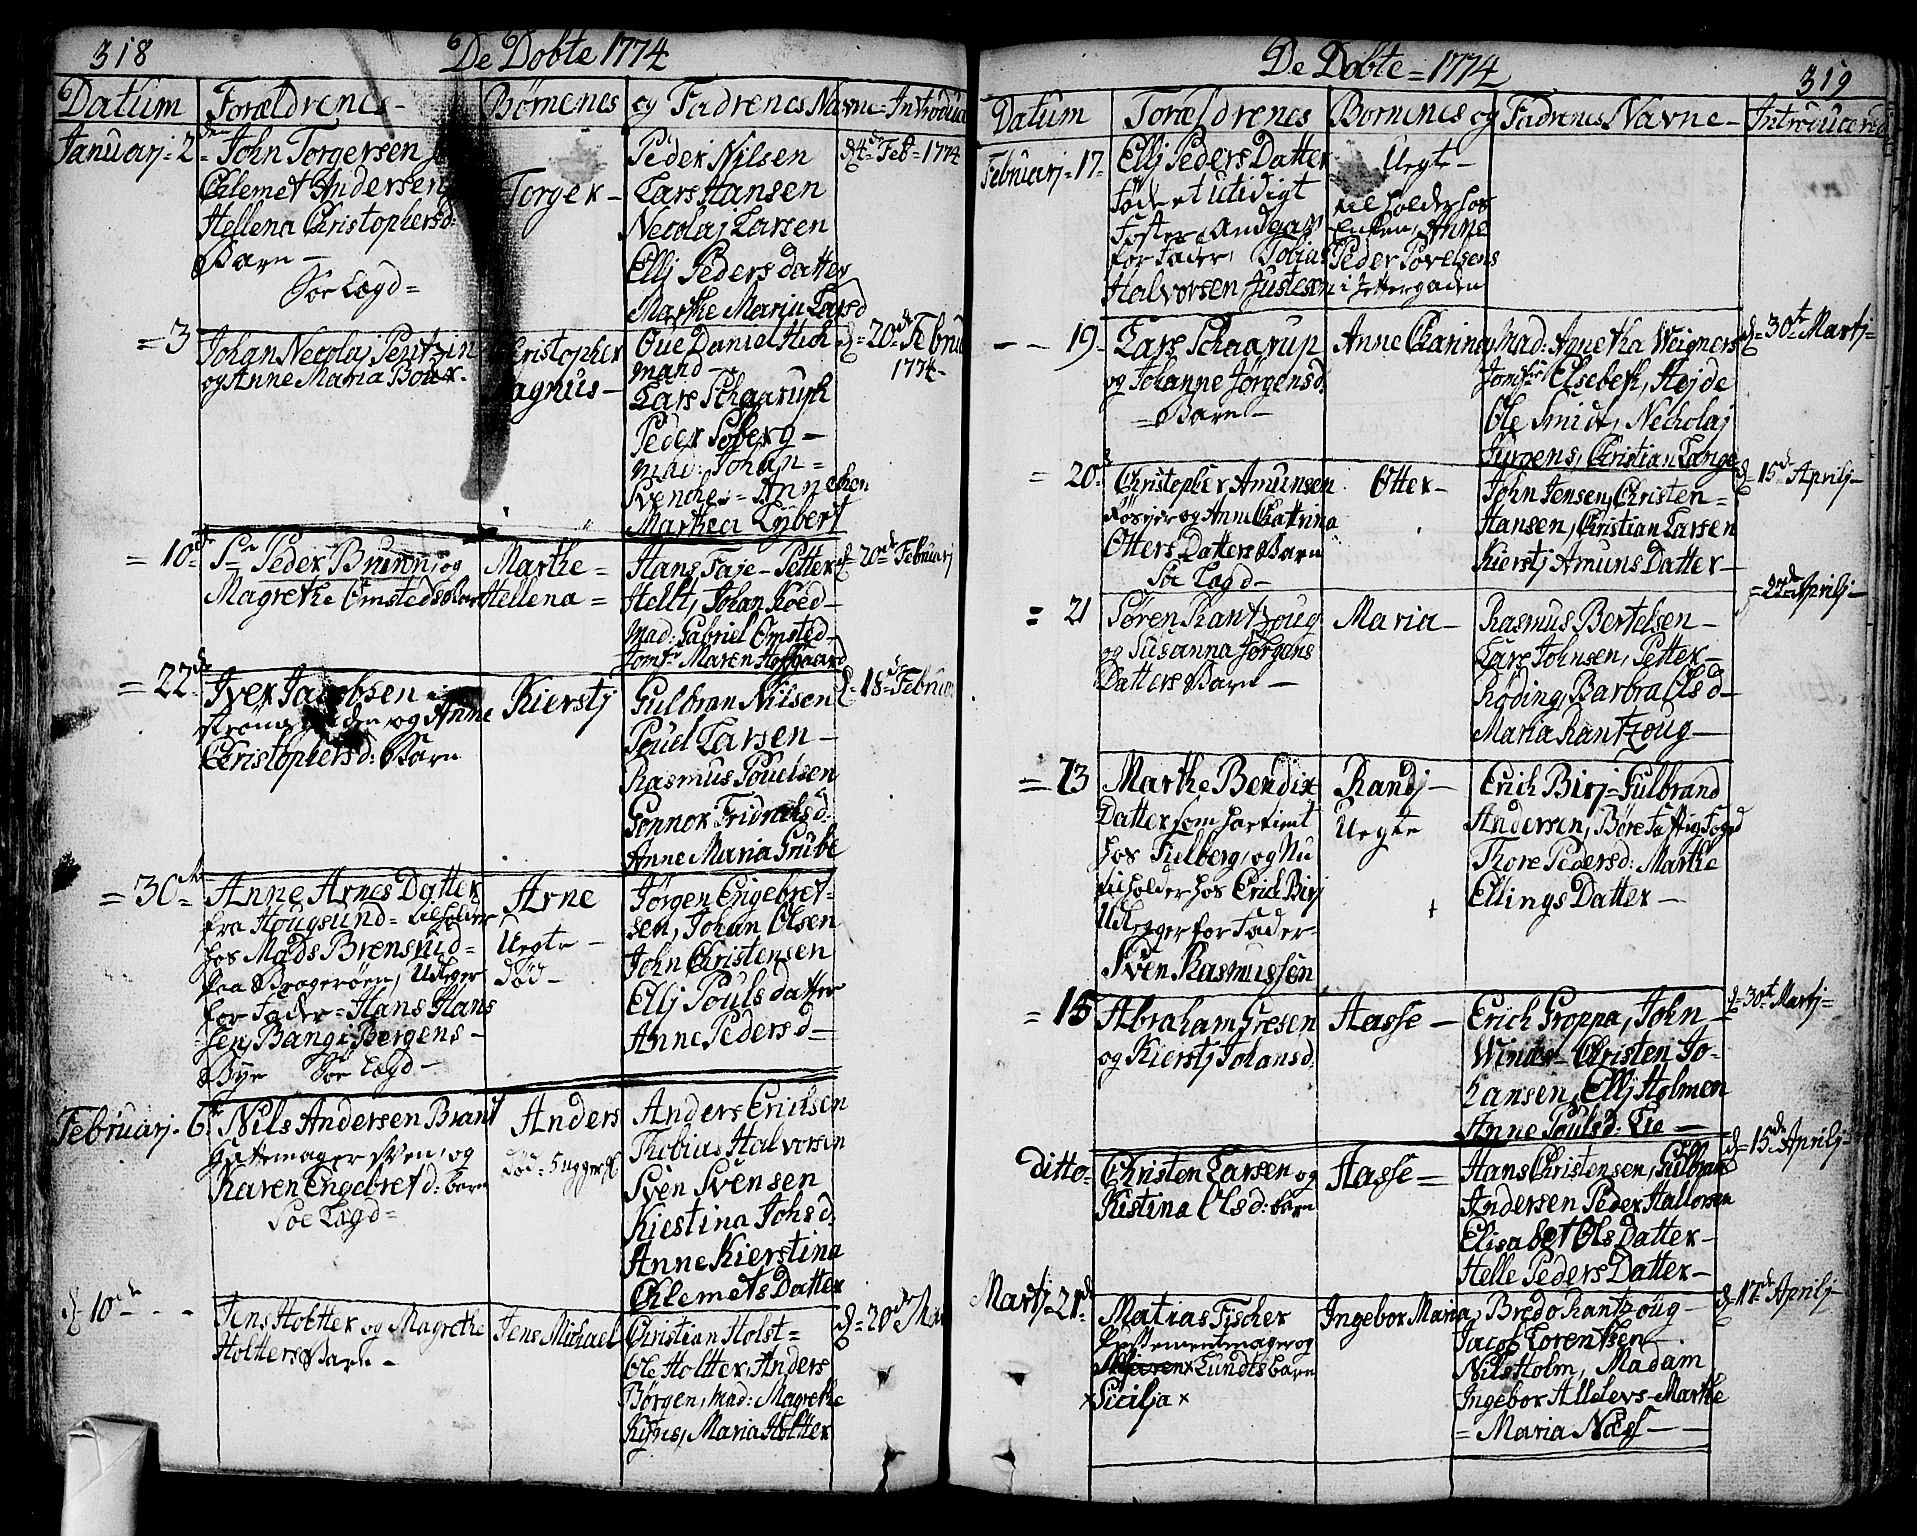 318
De Dobte 1774
Datum Forældrenes Børnenes og Fadrenes Navne Introduc
Januarj 2de
John Torgersen
Clemet Andersen
Hellena Christophersd:
Barn —
Søe Lægd =
Torger —
Peder Nilsen
Lars Hansen
Necolaj Larsen
Ellj Peders datter
Marthe Maria Larsd
d 4de Feb 1774
= 3
Johan Necolaj Pentzin
og Anne Maria Boux.
Christopher
Magnus —
Oue Daniel Hich
mand —
Lars Schaarup
Peder Soberg —
Mad: Johan =
Svenche = Annechen
Marthea Lybert
d = 20de Februa
1774
= 10de
Sr Peder Brunn, og
Magrethe Omsteds barn
Marthe =
Hellena =
Hans Faje — Petter
Hellt, Johan Koed —
Mad: Gabriel Omsted —
Jomfr Maren Hofgaard
d 20de Februarj
= 22de
Iver Jacobsen i
og Anne
Christophersd: Barn
Kierstj
Gulbran Nilsen
Pouel Larsen —
Rasmus Pouelsen
Gonnor Fridrichsd:
Anne Maria Grube
d 18de Februar
= 30te
Anne Arnes Datter
fra Hougsund = tilholder
hos Mads Brensrud =
paa Bragerøen, Udleger
for Fader = Hans Hans
sen Bang i Bergens —
Bye Søe Lægd —
Arne
Uegte —
død —
Jørgen Engebret-
sen, Johan Olsen
John Christensen
Ellj Pouls datter
Anne Pedersd —
Februarj 6te
Nils Andersen Brant
Hattemager Sven, og
Karen Engebretd: barn
Søe Lægd =
Anders
død = 5 ugger gl
Anders Ericksen
Thobius Halvorsen
Sven Svensen
Kiestina Johsd:
Anne Kierstina
Clemets Datter
d 10de - -
Jens Holtter og Magrethe
Holtters Barn —
Jens Michael
Christian Holst =
Ole Holtter, Anders
Børgen, Mad: Magrethe
Kyns, Maria Holtter
d = 20de Ma
De Dobte = 1774
319
Datum Forældrenes Bornenes og Fadrenes Navne — Introducered
Februarj = 17 -
Ellj Peders Datter
Føderet Utidigt
Foster, andgav
for Fader, Tobias
Halvorsen Justesen
Uegte —
tilholder hos
Enken, Anne
Peder Povelsens
i
- - 19 -
Lars Schaarup
og Johanne Jørgensd.
= Barn —
Anne Charina
Mad: Annetha Weigners
Jomfr: Elsebeth, Hejde
Ole Smidt, Necholaj
Jurgens, Christian Lange
d = 30te Martj =
= 20de
Christopher Amunsen
og Anne Chatrina
Otters Datters Barn
Søe Lægd —
Otter —
John Jensen, Christen =
Hansen, Christian Larsen
Kierstj Amuns Datter —
d 15de Aprilj —
= 21
Søren Rantzoug
og Susanna Jørgens
Datters Barn —
Maria —
Rasmus Bertelsen —
Lars Johnsen, Petter —
Roding, Barbra Olsd —
Maria Rantzoug —
= 22de Aprilj —
= 13
Marthe Bendix
Datter som har tient
hos Fielberg, og Nu
tilholder hos Erich Birj
Udlegger for Fader —
Sven Rasmussen
Randj —
Uegte
Erich Birj — Gulbrand
Andersen,
Thore Pedersd: Marthe
Ellings Datter —
= 15
Abraham Gresen
og Kierstj Johansd.
Aasse —
Erich Groppa, John —
Winder — Christen Jo-
hansen, Ellj Holmen
Anne Poulsd: Lie —
d = 30te Martj =
ditto —
Christen Larsen og
Kistina Olsd: barn
Aasse =
Hans Christensen, Gulbrand
Andersen Peder Halloren
Elisabet Ols Datter —
Helle Peders Datter —
d = 15de Aprilj —
Martj = 21de
Matias Fischer
Instrementmager og
Maren × Lundts barn
× Sicilja ×
Ingebor Maria,
Bredo Rantzoug —
Jacob Lorentsen —
Nils Holm, Madam
Ingebor Allelevs — Marthe
= Maria Næss — —
d 17de Aprilj —